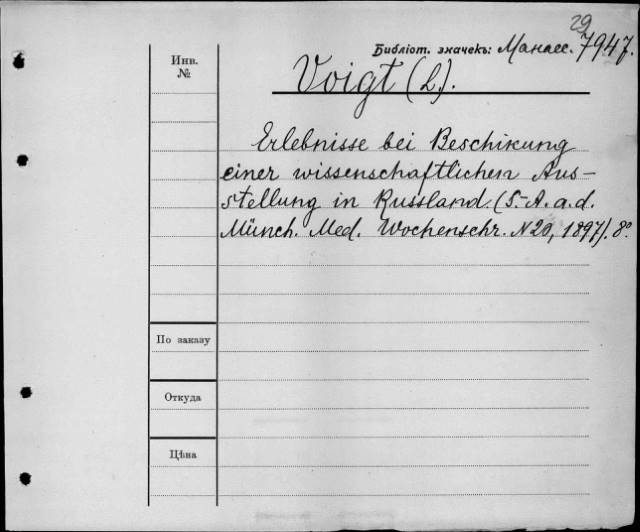 29
Библіот. значекъ: Манасс. 7947.
Инв.
№
Voigt (L).
Erlebnisse bei Beschikung
einer wissenschaftlichen Aus-
stellung in Russland. (S.-A. a. d.
Münch. Med. Wochenschr. N 20, 1897). 8º
По заказу
Откуда
Цѣна